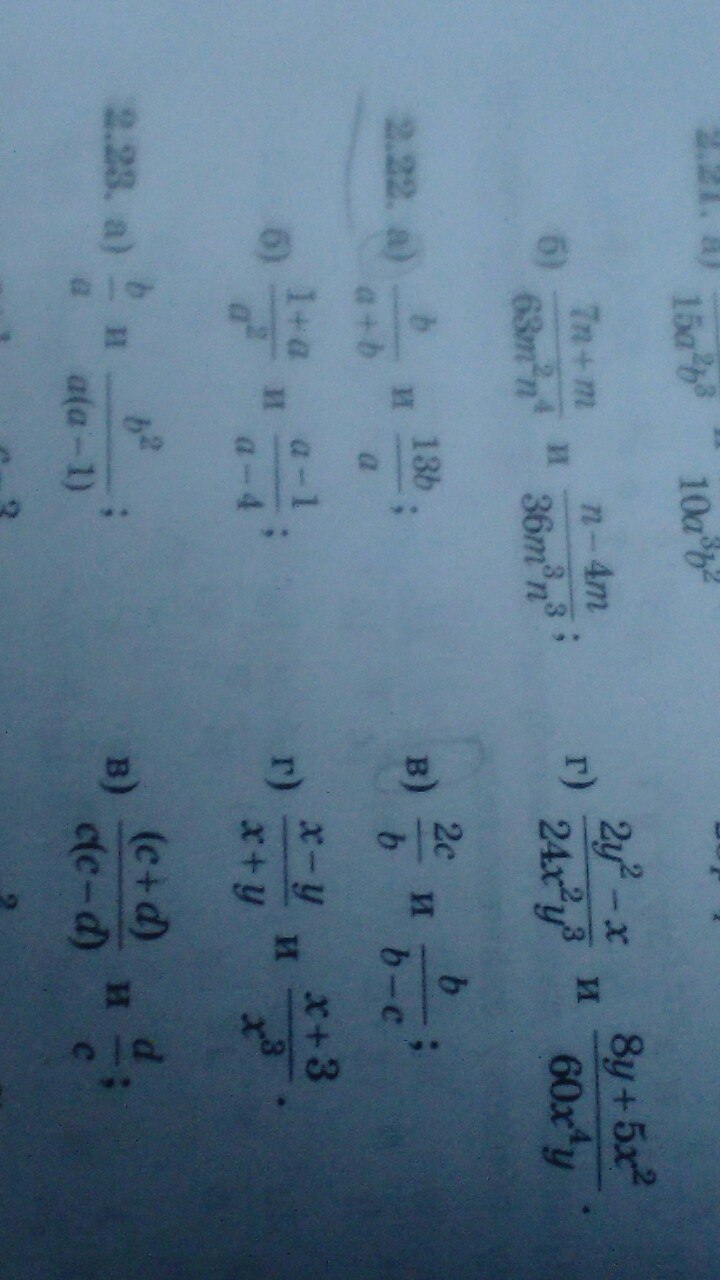 2.21. а) 15a²b³ 10a³b²
б) (7n + m)/(63m²n⁴) и (n − 4m)/(36m³n³); г) (2y² − x)/(24x²y³) и (8y + 5x²)/(60x⁴y).
2.22. а) b/(a + b) и 13b/a; в) 2c/b и b/(b − c);
б) (1 + a)/a² и (a − 1)/(a − 4); г) (x − y)/(x + y) и (x + 3)/x³.
2.23. а) b/a и b²/(a(a − 1)); в) (c + d)/(c(c − d)) и d/c;